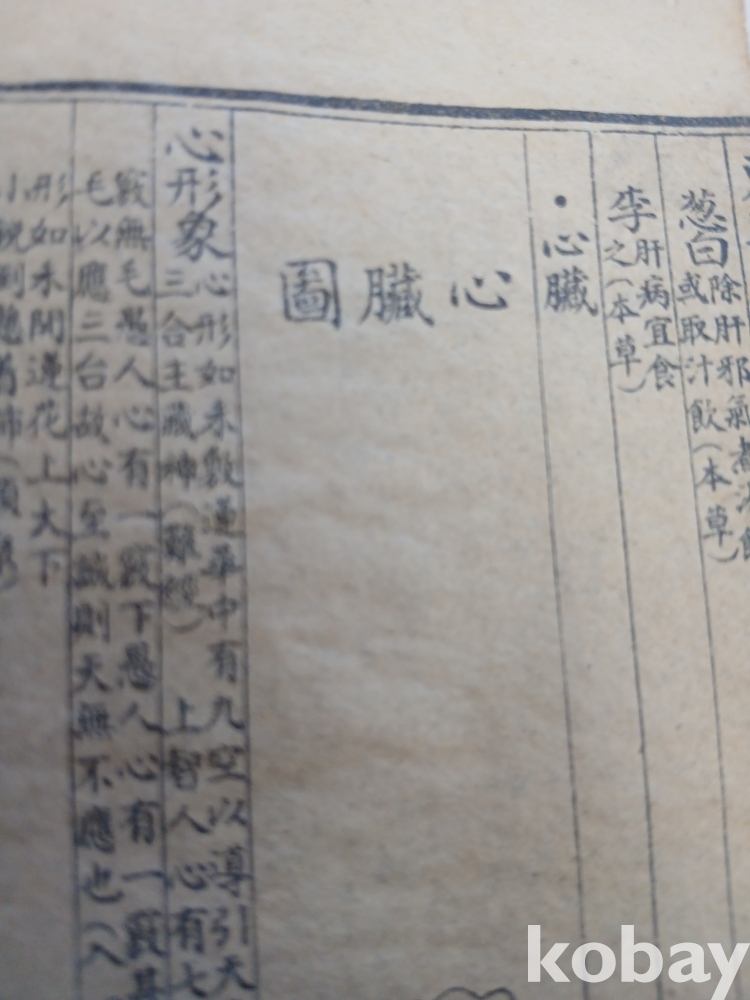 葱白
除肝邪氣煮湯飮
或取汁飮(本草)
李
肝病宜食
之(本草)
•心臟
心臟圖
心形象
心形如未敷蓮華中有九空以導引天
三合主藏神(難經) 上智人心有七
竅無毛愚人心有一竅下愚人心有一竅甚
毛以應三台故心至誠則天無不應也(入
形如未開蓮花上大下
kobay